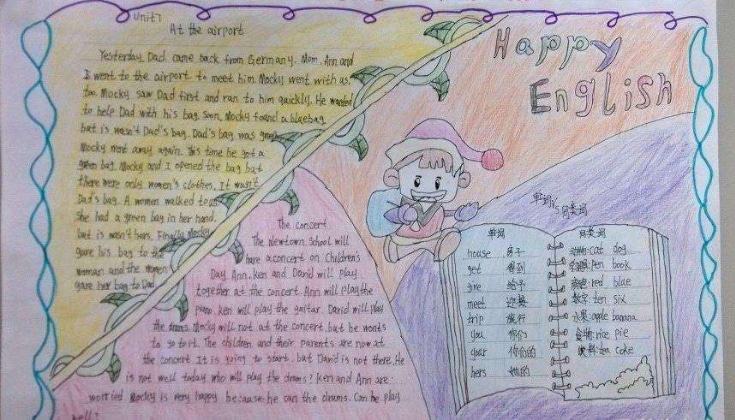 Unit7
At the airport
Yesterday Dad came back from Germany. Mom, Ann and
I went to the airport to meet him Mocky went with us,
too. Mocky saw Dad first and ran to him quickly. He wanted
to help Dad with his bag. Soon, Mocky found a bluebag
but is wasn't Dad's bag. Dad's bag was green
Mocky went away again. This time he got a
green bag. Mocky and I opened the bag but
there were only women's clothes. It wasn't
Dad's bag. A women walked to
She had a green bag in her hand,
but is wasn't hers. Finally Mocky
gave his bag to the
woman and the women
gave her bag to Dad
Happy
English
The concert
The Newtown School will
have a concert on Children's
Day Ann, ken and David will play
together at the concert. Ann will playthe
piano. ken will play the guitar. David will play
the drams. Mocky will not at the concert. but he wants
to go to it. The children and their parents are now at
the concert It is going to start, but David is not there. He
is not well today who will play the drams? ken and Ann are
worried Mocky is very happy because he can the drams. Can he play
well?
单词 归类词
house 房子
get 得到
give 给予
meet 迎接
trip 旅行
you 你们
your 你们的
hers 她的
归类词
动物:cat dog
pen book
red blue
数字:ten six
水果:apple banana
食物:rice pie
饮料:tea coke